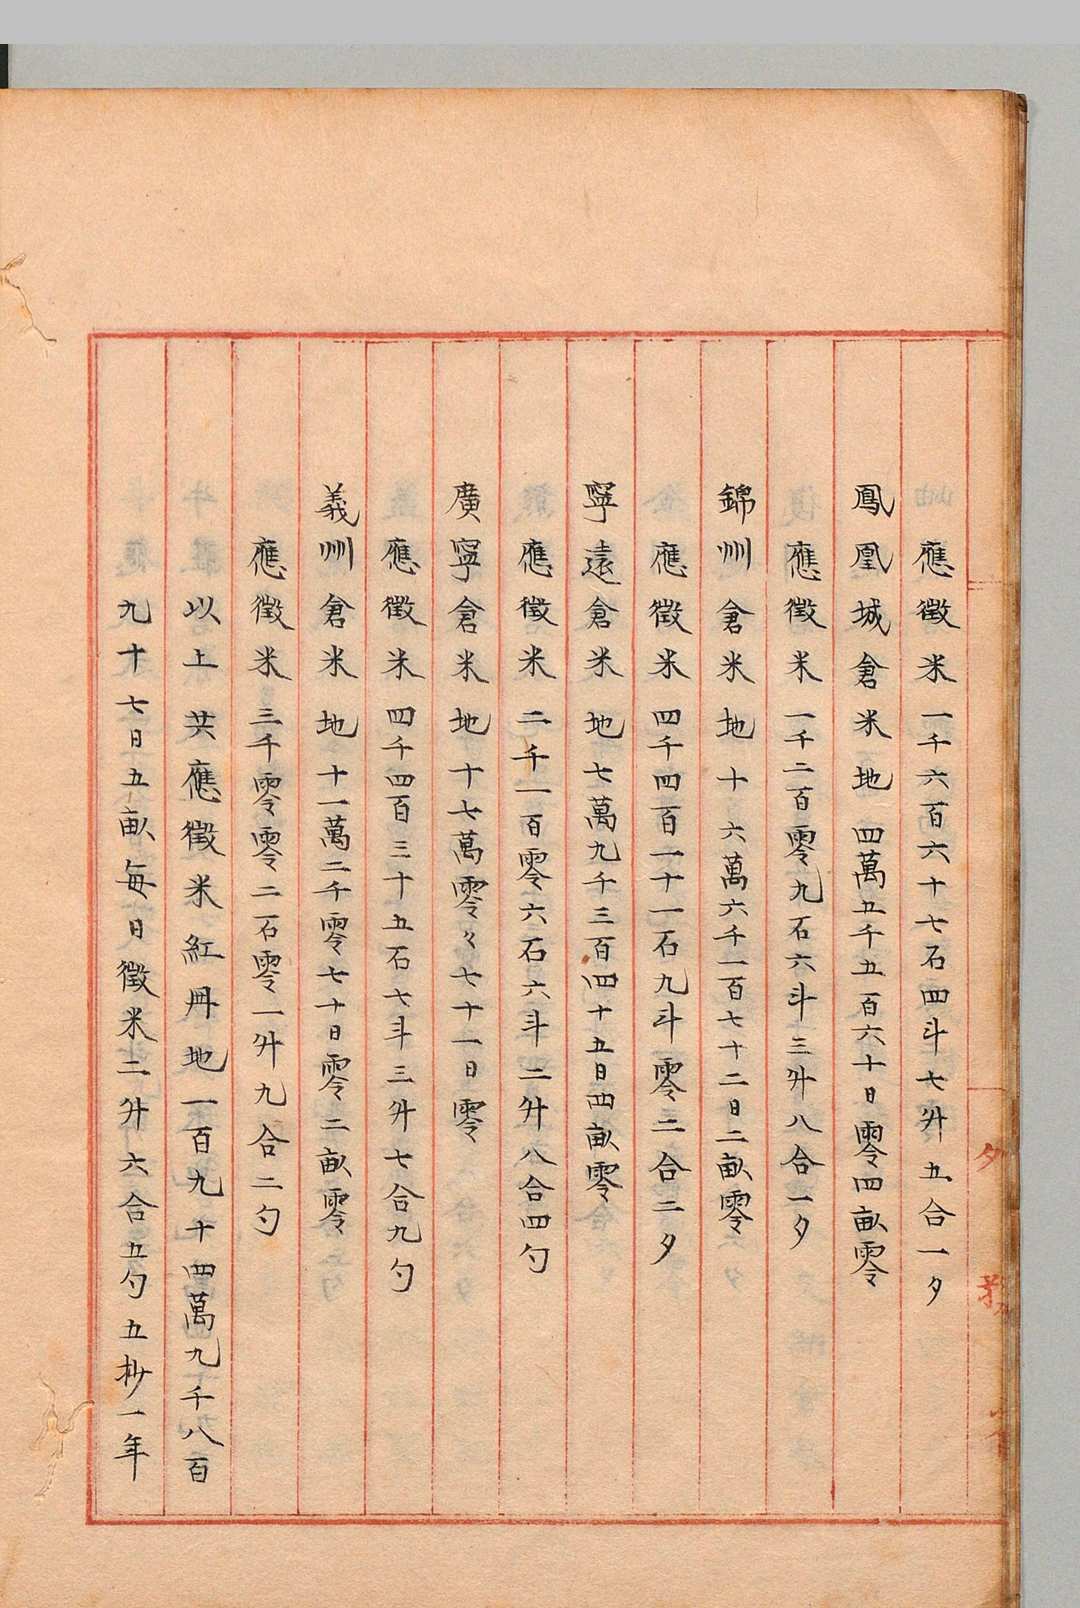 應徵米一千六百六十七石四斗七升五合一夕
鳳凰城倉米地四萬五千五百六十日零四畝零
應徵米一千二百零九石六斗三升八合一夕
錦州倉米地十六萬六千一百七十二日二畝零
應徵米四千四百一十一石九斗零二合二夕
寧遠倉米地七萬九千三百四十五日四畝零
應徵米二千一百零六石六斗二升八合四勺
廣寧倉米地十七萬零々七十一日零
應徵米四千四百三十五石七斗三升七合九勺
義州倉米地十一萬二千零七十日零二畝零
應徵米三千零零二石零一升九合二勺
以上共應徵米紅冊地一百九十四萬九千八百
九十七日五畝每日徵米二升六合五勺五杪一年